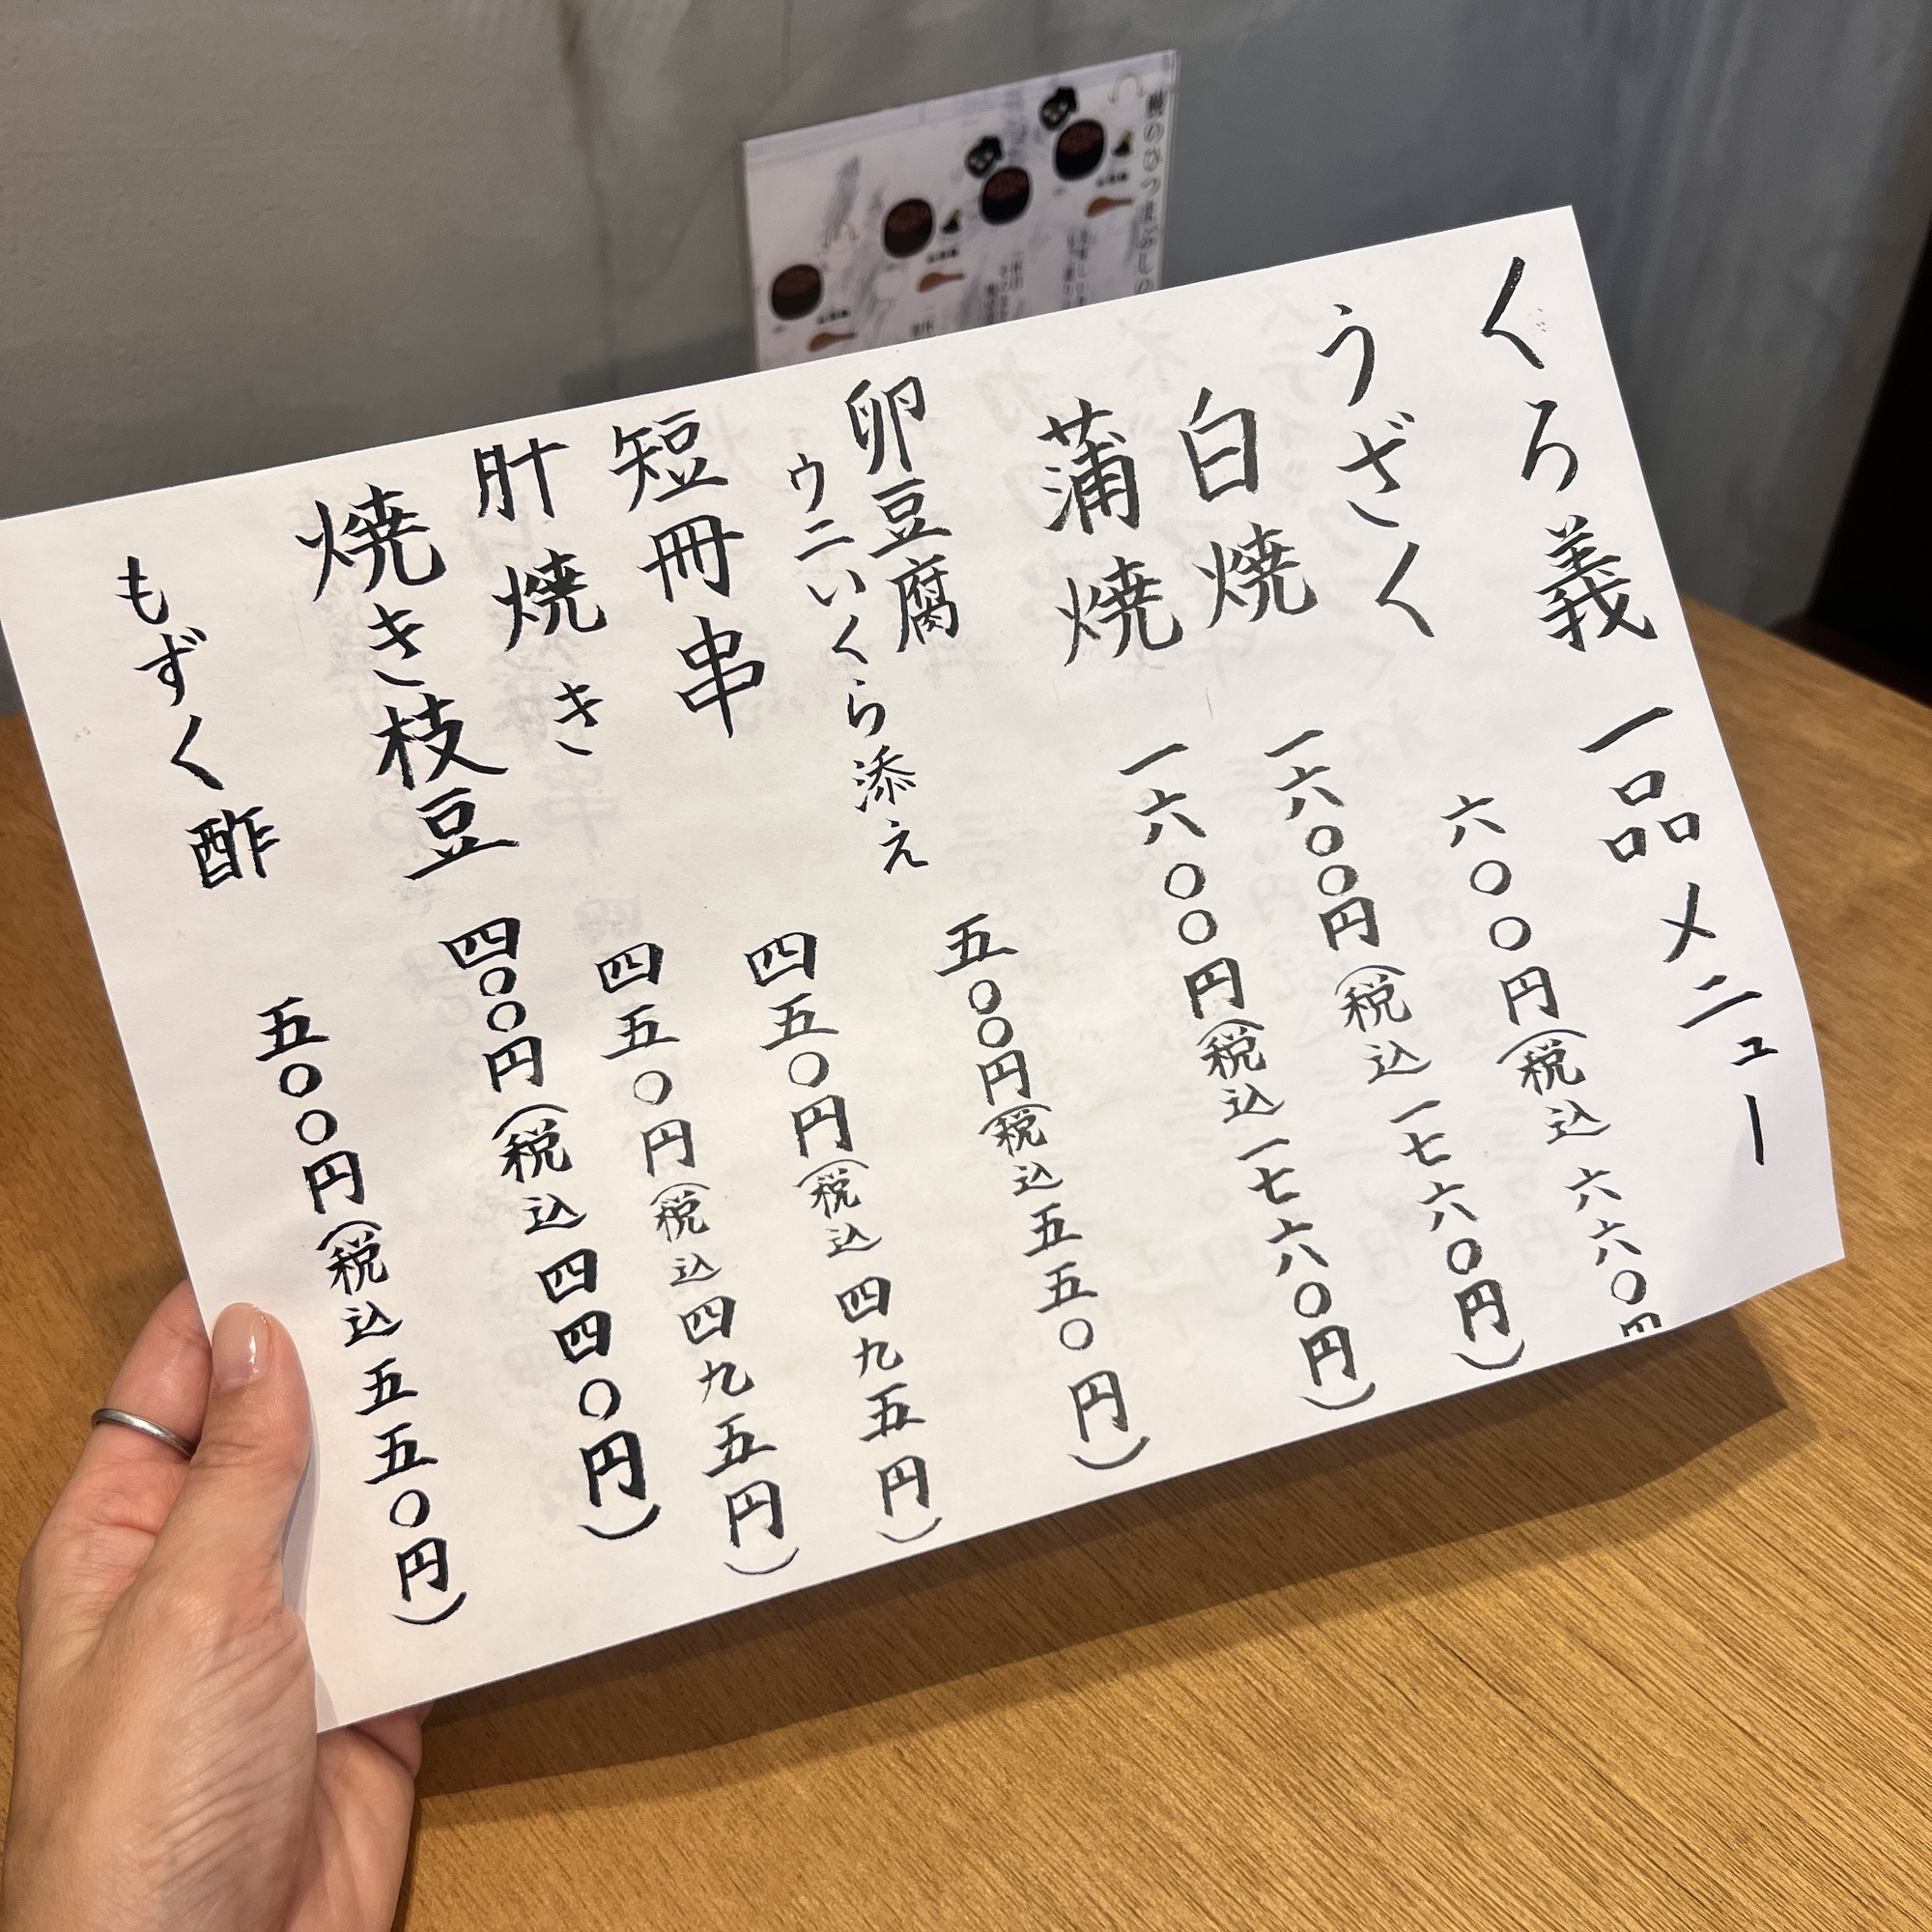 くろ義 一品メニュー
うざく 六〇〇円(税込六六〇円
白焼 一六〇〇円(税込一七六〇円)
蒲焼 一六〇〇円(税込一七六〇円)
卵豆腐
ウニいくら添え 五〇〇円(税込五五〇円)
短冊串 四五〇円(税込四九五円)
肝焼き 四五〇円(税込四九五円)
焼き枝豆 四〇〇円(税込四四〇円)
もずく酢 五〇〇円(税込五五〇円)
のひつまぶしの